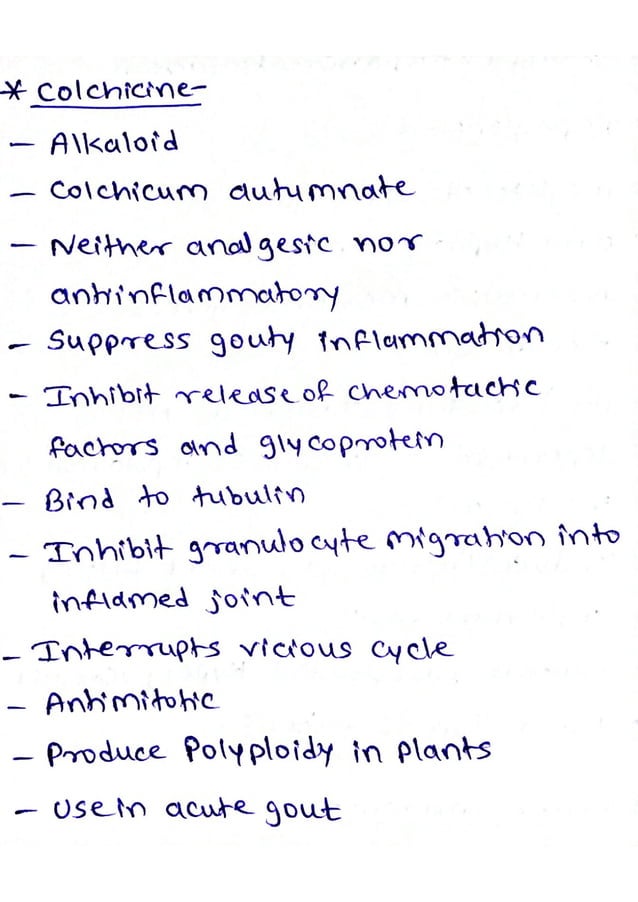 * Colchicine-
- Alkaloid
- Colchicum autumnate
- Neither analgesic nor
antiinflammatory
- Suppress gouty inflammation
- Inhibit release of chemotactic
factors and glycoprotein
- Bind to tubulin
- Inhibit granulocyte migration into
inflamed joint
- Interrupts vicious cycle
- Antimitotic
- Produce Polyploidy in plants
- Use in acute gout